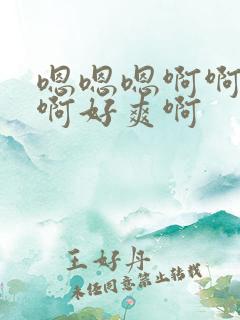 嗯嗯嗯啊啊
啊好爽啊
王好丹
未经同意禁止转载